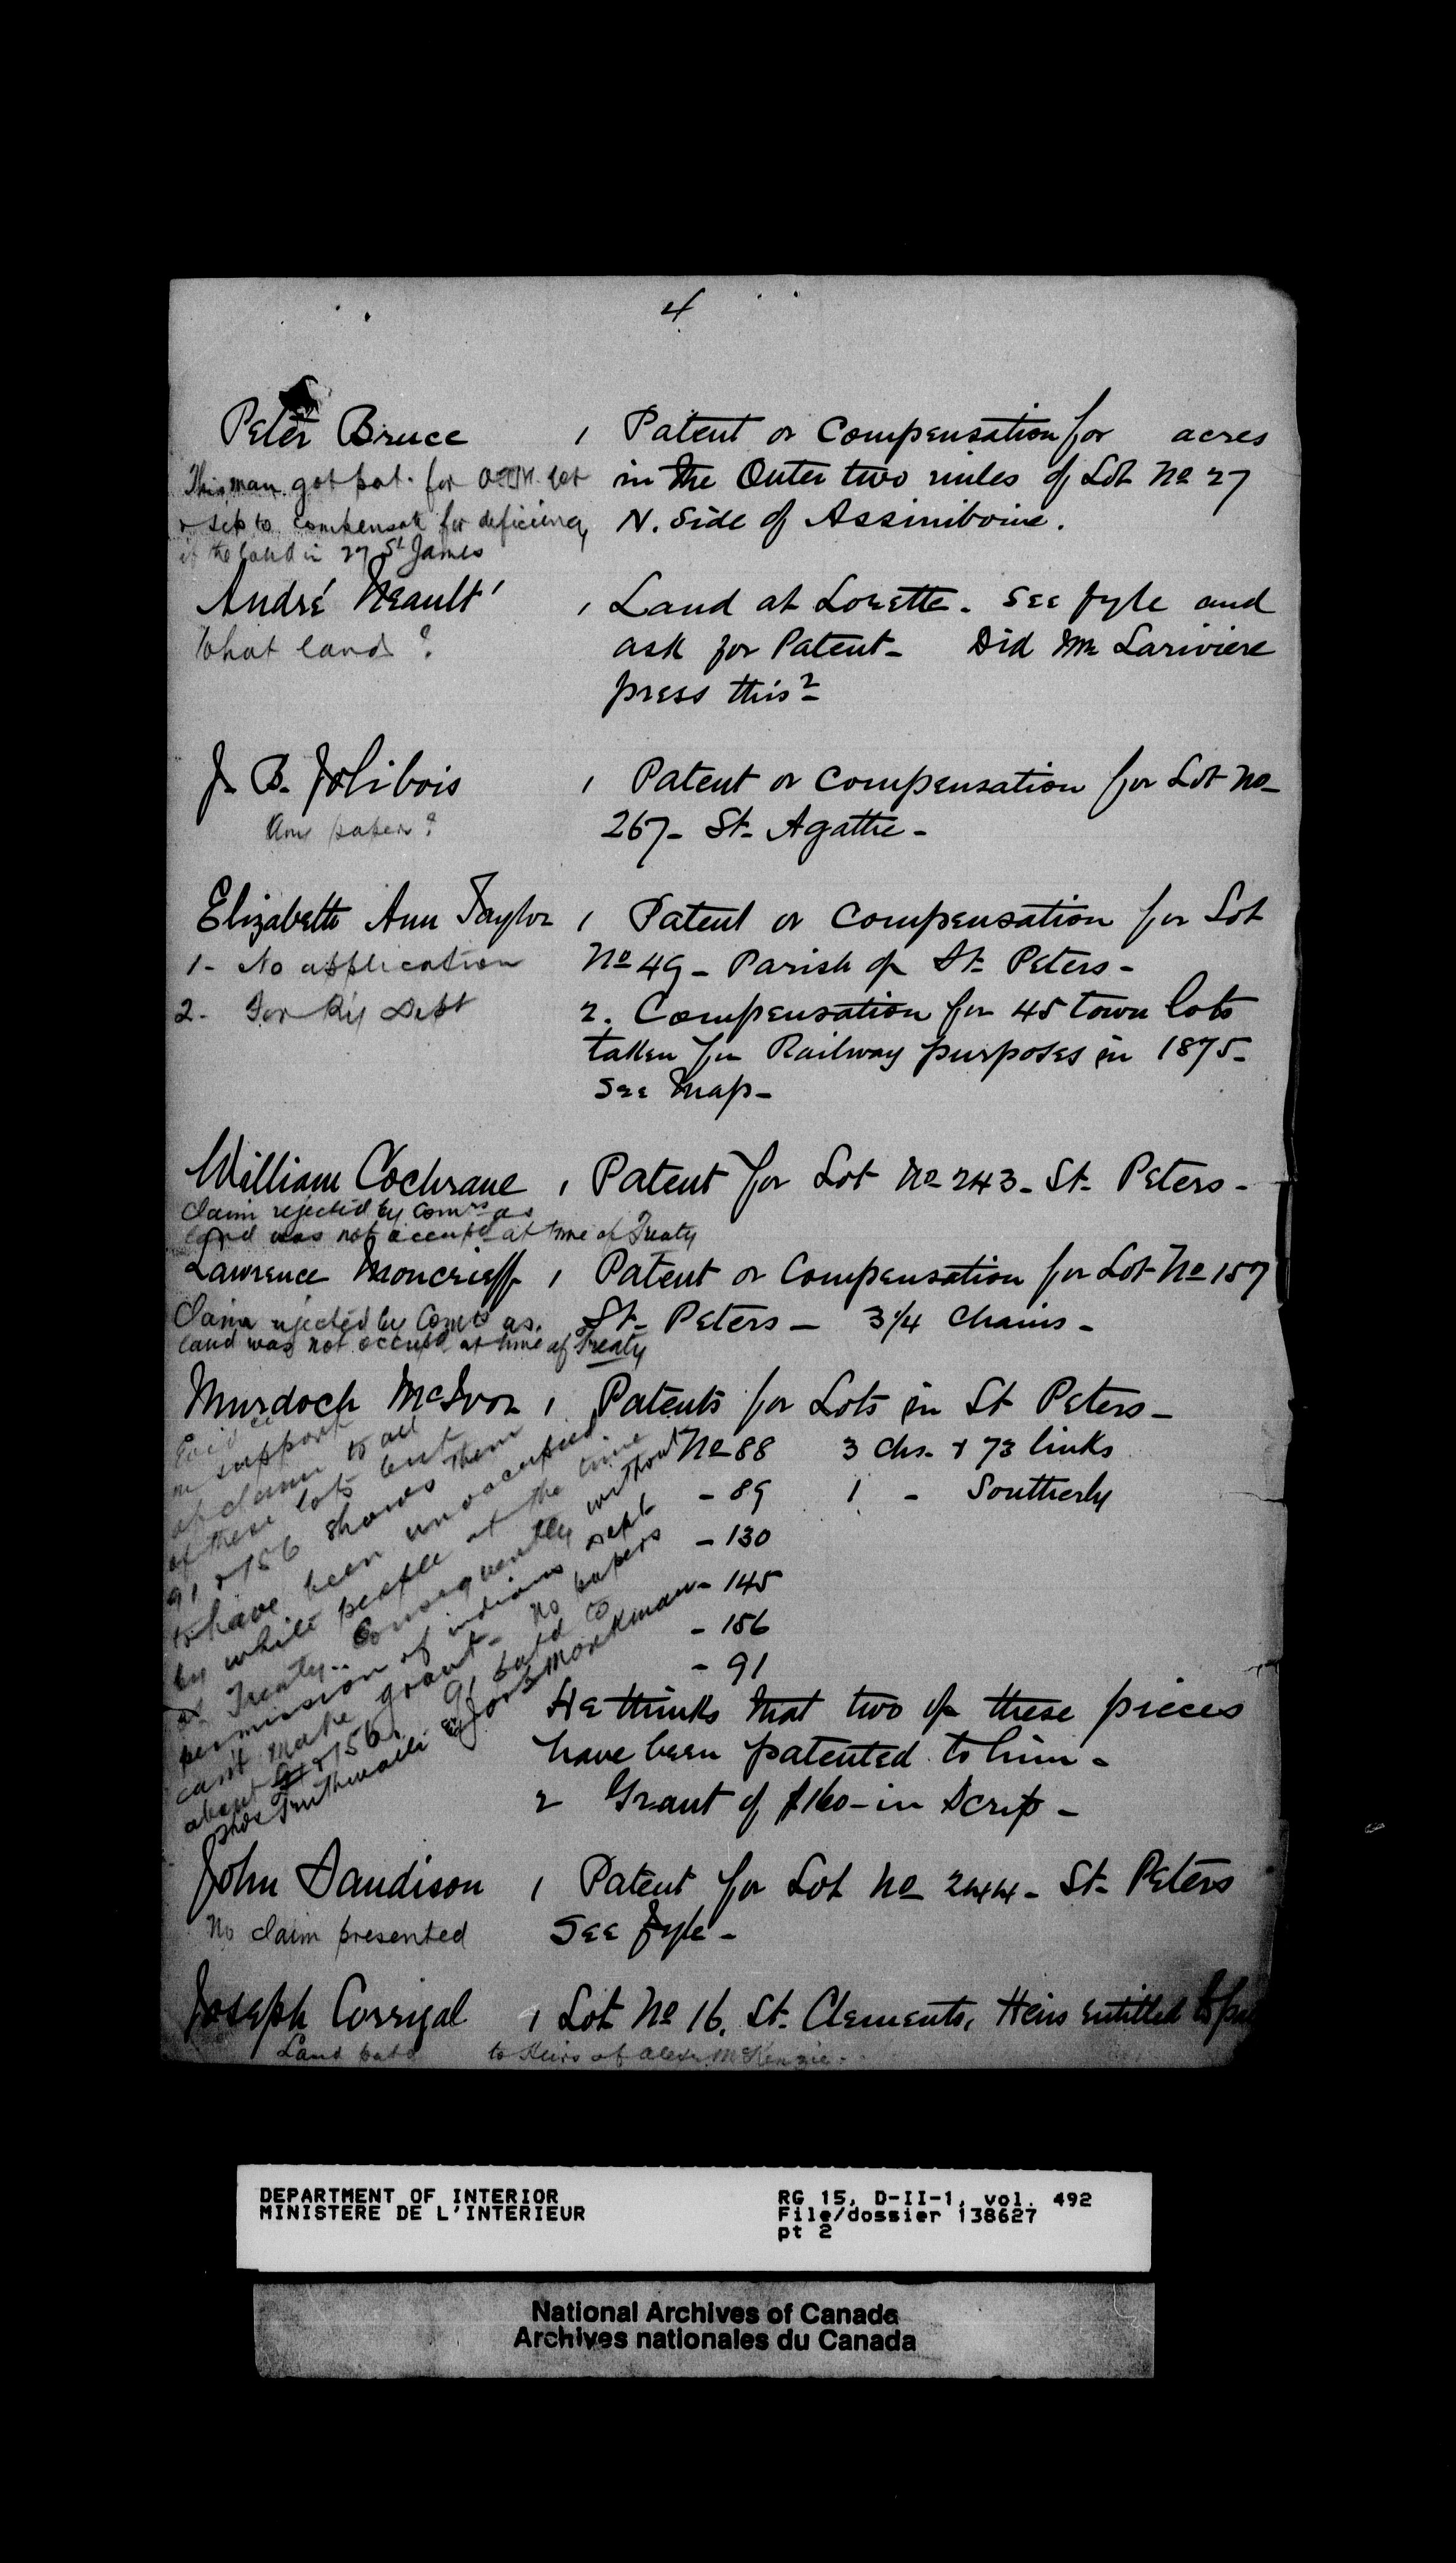 4
Peter Bruce 1 Patent or Compensation for acres
This man got pat. for lot in the Outer two miles of Lot No 27
to compensate for deficiency N. Side of Assiniboine.
the land in 27 St James
André Neault 1 Land at Lorette. See fyle and
What land? ask for Patent - Did Mr Lariviere
press this?
J. B. Jolibois 1 Patent or Compensation for Lot No
Any papers? 267 - St. Agathe -
Elizabeth Ann Taylor 1 Patent or Compensation for Lot
1 - No application No 49 - Parish of St. Peters -
2 - For Ry Dept 2. Compensation for 45 town lots
taken for Railway purposes in 1875 -
See Map -
William Cochrane 1 Patent for Lot No 243 - St. Peters -
Claim rejected by Comrs as
land was not occupd at time of Treaty
Lawrence Moncrieff 1 Patent or Compensation for Lot No 157
Claim rejected by Comrs as St. Peters - 3 1/4 Chains -
land was not occupd at time of Treaty
Murdoch McIvor 1 Patents for Lots in St Peters -
No 88 3 chs. & 73 links
- 89 1 - Southerly
- 130
- 145
- 156
- 91
in support
of claim to all
of these lots but
91 & 156 shows them
to have been unoccupied
by white people at the time
of Treaty. Consequently without
permission of indians dept
can't make grant - No papers
about 156. 91 patd to
Jos Monkman
He thinks that two of these pieces
have been patented to him -
2 Grant of $160 - in Scrip -
John Sandison 1 Patent for Lot No 244 - St. Peters
No claim presented See fyle -
Joseph Corrigal 1 Lot No 16. St. Clements, Heirs entitled to
Land patd to Heirs of Alexr McKenzie -
DEPARTMENT OF INTERIOR
MINISTERE DE L'INTERIEUR
RG 15, D-II-1, vol. 492
File/dossier 138627
pt 2
National Archives of Canada
Archives nationales du Canada